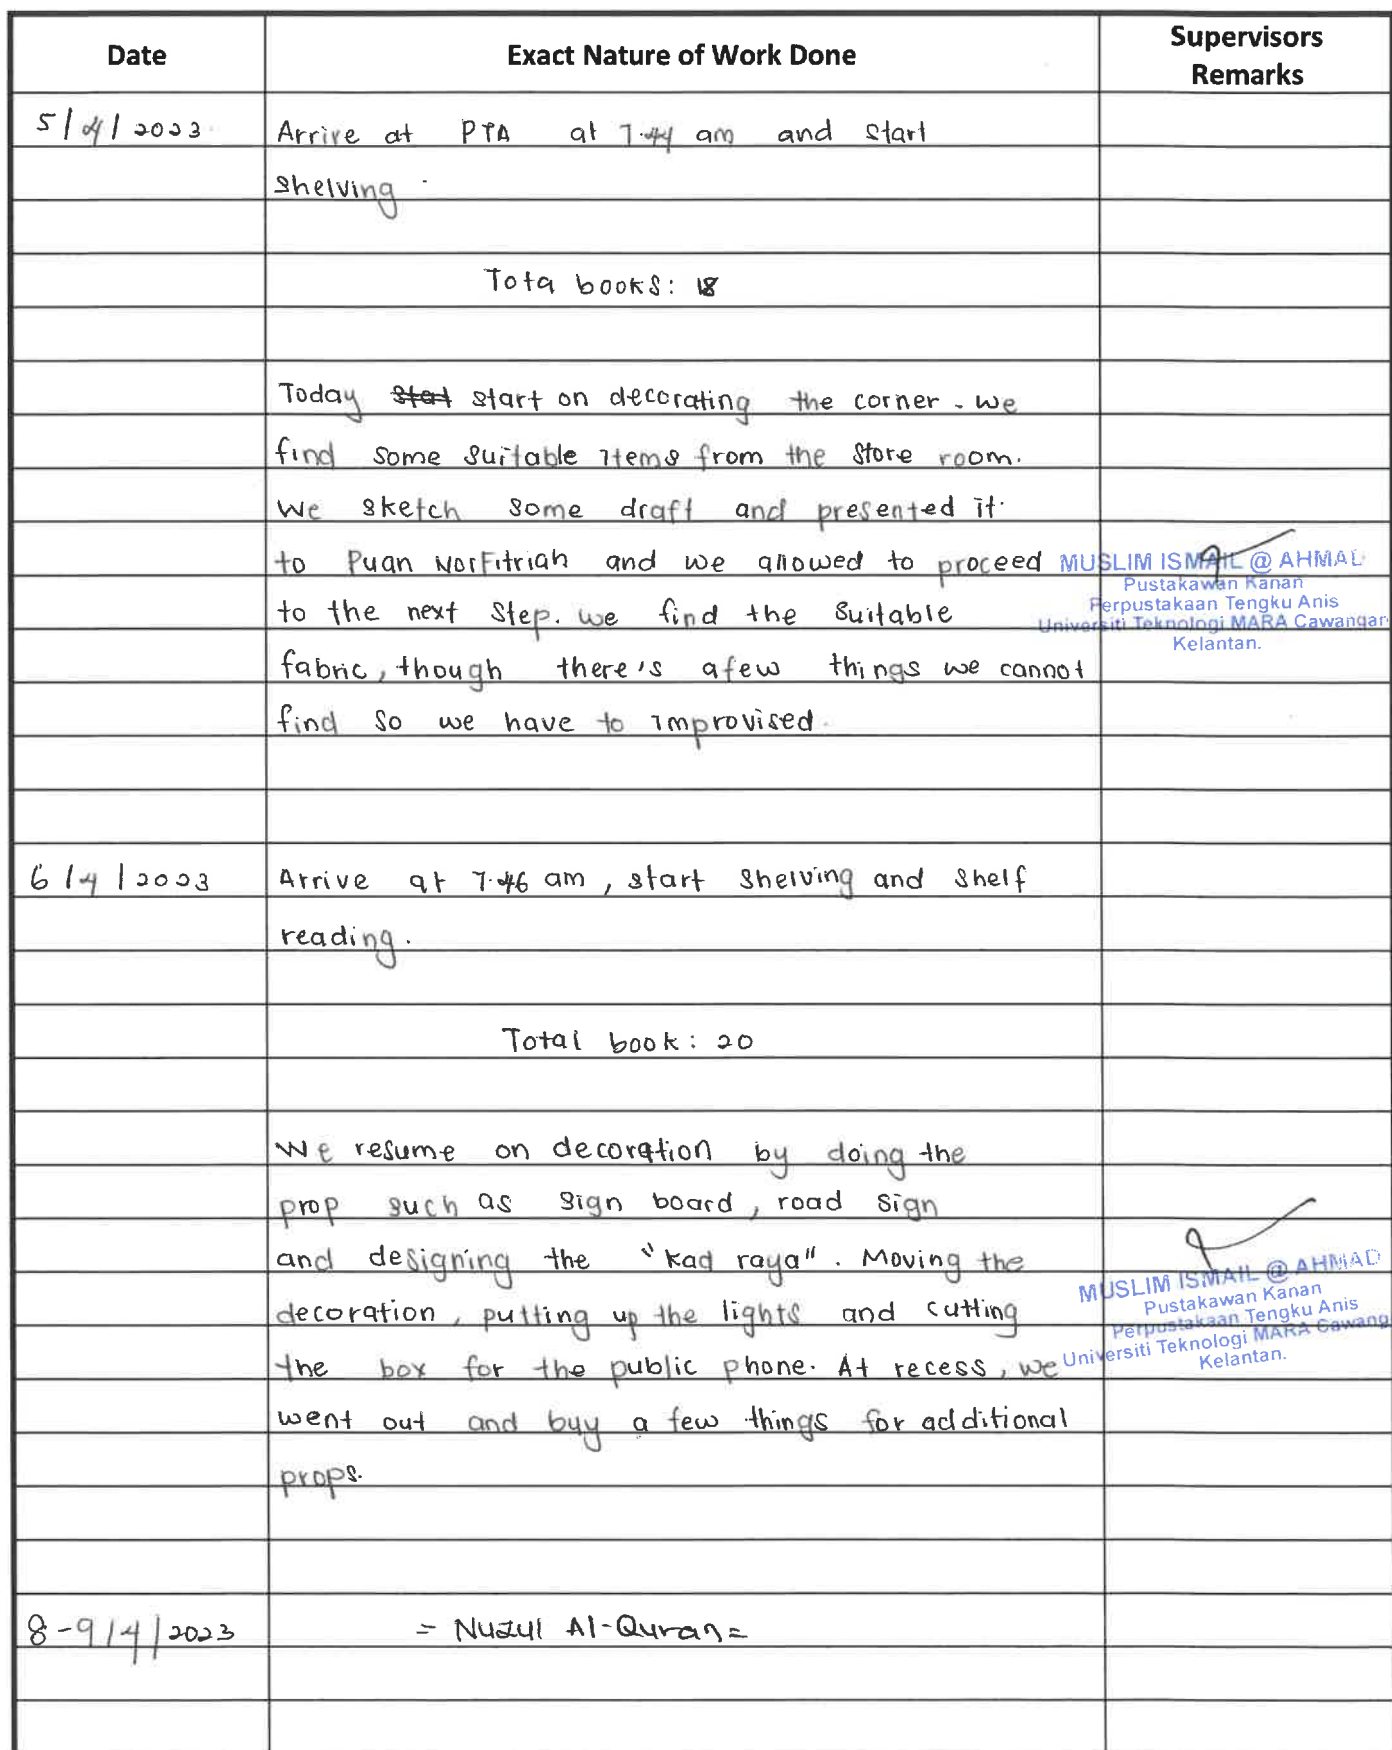 Date Exact Nature of Work Done Supervisors Remarks
5/4/2023 Arrive at PTA at 7.44 am and start
shelving.
Tota books: 18
Today start start on decorating the corner. we
find some suitable items from the store room.
we sketch some draft and presented it
to Puan NorFitriah and we allowed to proceed
to the next step. we find the suitable
fabric, though there's afew things we cannot
find so we have to improvised.
MUSLIM ISMAIL @ AHMAD
Pustakawan Kanan
Perpustakaan Tengku Anis
Universiti Teknologi MARA Cawangan
Kelantan.
6/4/2023 Arrive at 7.46 am, start shelving and shelf
reading.
Total book: 20
We resume on decoration by doing the
prop such as sign board, road sign
and designing the "kad raya". Moving the
decoration, putting up the lights and cutting
the box for the public phone. At recess, we
went out and buy a few things for additional
props.
MUSLIM ISMAIL @ AHMAD
Pustakawan Kanan
Perpustakaan Tengku Anis
Universiti Teknologi MARA Cawang
Kelantan.
8-9/4/2023 = Nuzul Al-Quran =